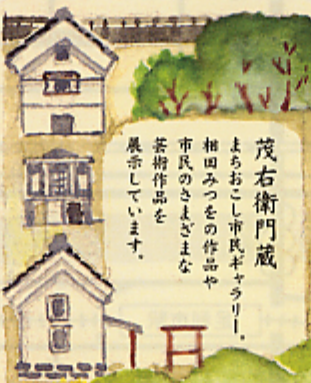 茂右衛門蔵
まちおこし市民ギャラリー。
相田みつをの作品や
市民のさまざまな
芸術作品を
展示しています。